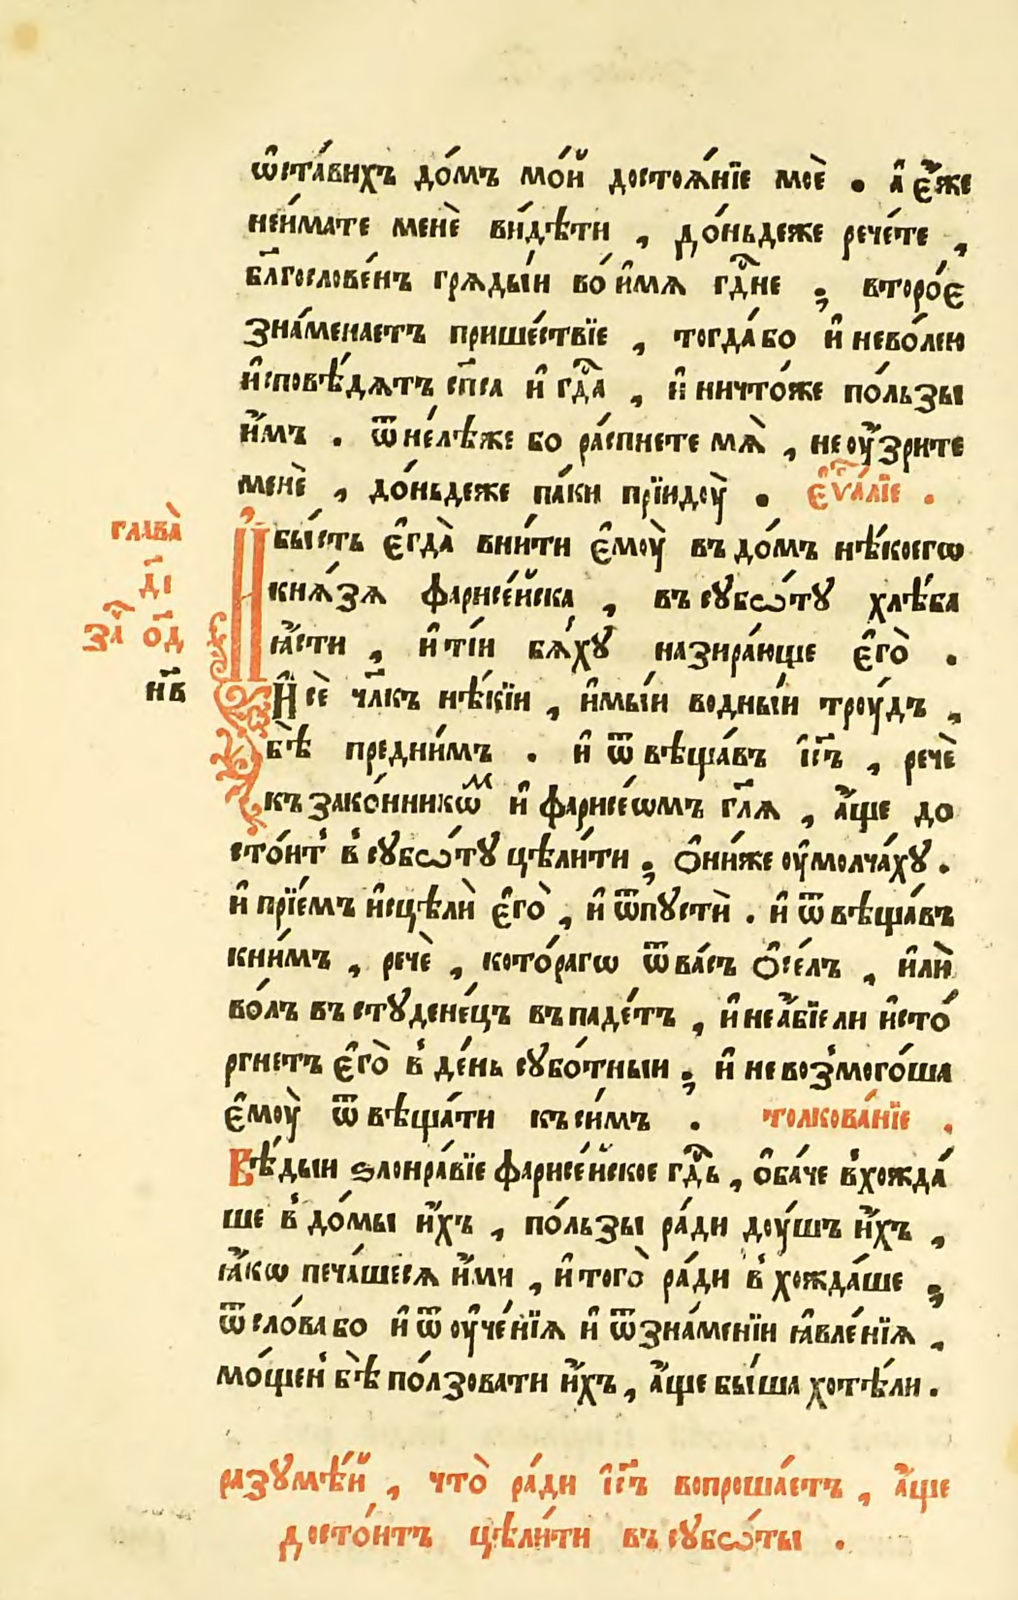 ѡ҆ста́вихъ до́мъ мо́й достоѧ́нїе моѐ . а҆ є҆́же
неи́мате менѐ ви́дѣти , до́ньдеже рече́те ,
бл҃гословенъ грѧды́и во и҆́мѧ гдⷭ҇не ; второ́є
зна́менаетъ прише́ствїе , тогда́ бо и҆ нево́лею
и҆сповѣ́дѧтъ сп҃са и҆ гдⷭ҇а , и҆ ничто́же по́льзы
и҆́мъ . ѿне́лѣже бо ра́спнете мѧ̀ , не оу҆́зрите
менѐ , до́ньдеже па́ки прїи́доу̀ . є҆ѵⷢ҇а́лїе .
глава̀
д҃і
за҃ ѻ҃д
н҃в
И бы́сть є҆гда̀ вни́ти є҆моу̀ въ до́мъ нѣ́коегѡ
кнѧ́зѧ фарисе́йска , въ сꙋббѡ́тꙋ хлѣ́ба
ꙗ҆́сти , и҆ ті́и бѧ́хꙋ назира́юще є҆го̀ .
И҆ сѐ чл҃къ нѣ́кїи , и҆мы́и водны́и троу́дъ ,
бѣ̀ предни́мъ . и҆ ѿвѣща́въ і҆с҃ъ , речѐ
къ зако́нникѡⷨ и҆ фарисе́ѡмъ гл҃ѧ , а҆́ще до
сто́ит в сꙋбѡ́тꙋ цѣли́ти ; ѻ҆ни́же оу҆молча́хꙋ .
и҆ прїе́мъ и҆сцѣлѝ є҆го̀ , и҆ ѿпꙋстѝ . и҆ ѿвѣща́въ
кни́мъ , речѐ , кото́рагѡ ѿ ва́съ ѻ҆се́лъ , и҆лѝ
во́лъ въ стꙋдене́цъ въпаде́тъ , и҆ не а҆́бїе ли и҆сто́
ргнетъ є҆го̀ в де́нь сꙋбо́тныи ; и҆ не возмого́ша
є҆моу̀ ѿвѣща́ти къ си́мъ . толкова́нїе .
Вѣ́дыи ѕлонра́вїе фарисе́йское гдⷭ҇ь , ѻ҆ба́че вхожда́
ше в до́мы и҆́хъ , по́льзы ра́ди доу́шъ и҆́хъ ,
ꙗ҆́кѡ печа́шесѧ и҆́ми , и҆ того̀ ра́ди в хожда́ше ;
ѿ сло́ва бо и҆ ѿ оу҆че́нїѧ и҆ ѿ зна́менїи ꙗ҆вле́нїѧ ,
мо́щен бѣ̀ по́лзовати и҆́хъ , а҆́ще бы́ша хотѣ́ли .
разꙋмѣ́й , что̀ ра́ди і҆с҃ъ вопроша́етъ , а҆́ще
досто́итъ цѣли́ти въ сꙋбѡ́ты .